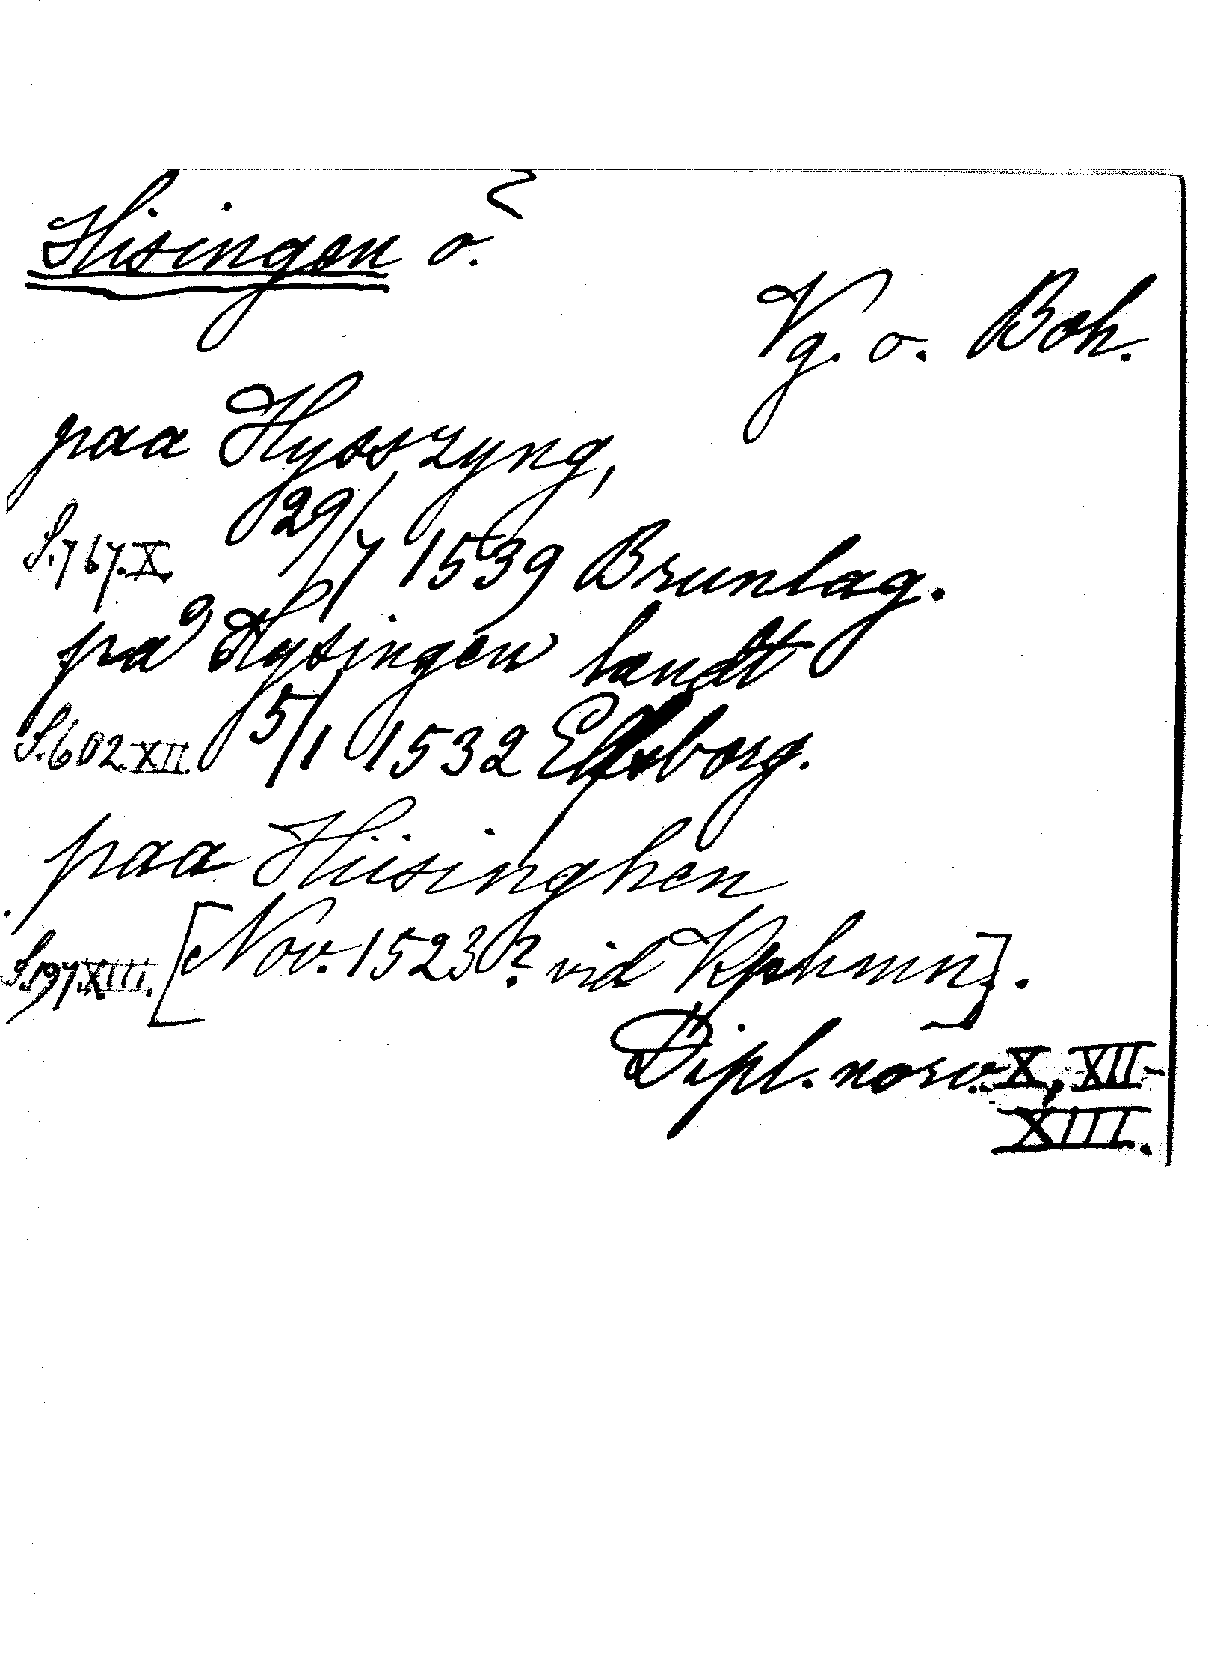 Hisingen ö.
Vg. o. Boh.
paa Hysszyng,
S. 767. X. 29/7 1539 Brunlag.
på Hysingen landt
S. 602 XII. 5/1 1532 Elfsborg.
paa Hiisinghen
S. 197 XIII. [Nov. 1523? vid Kphmn].
Dipl. norv. X, XII-
XIII.